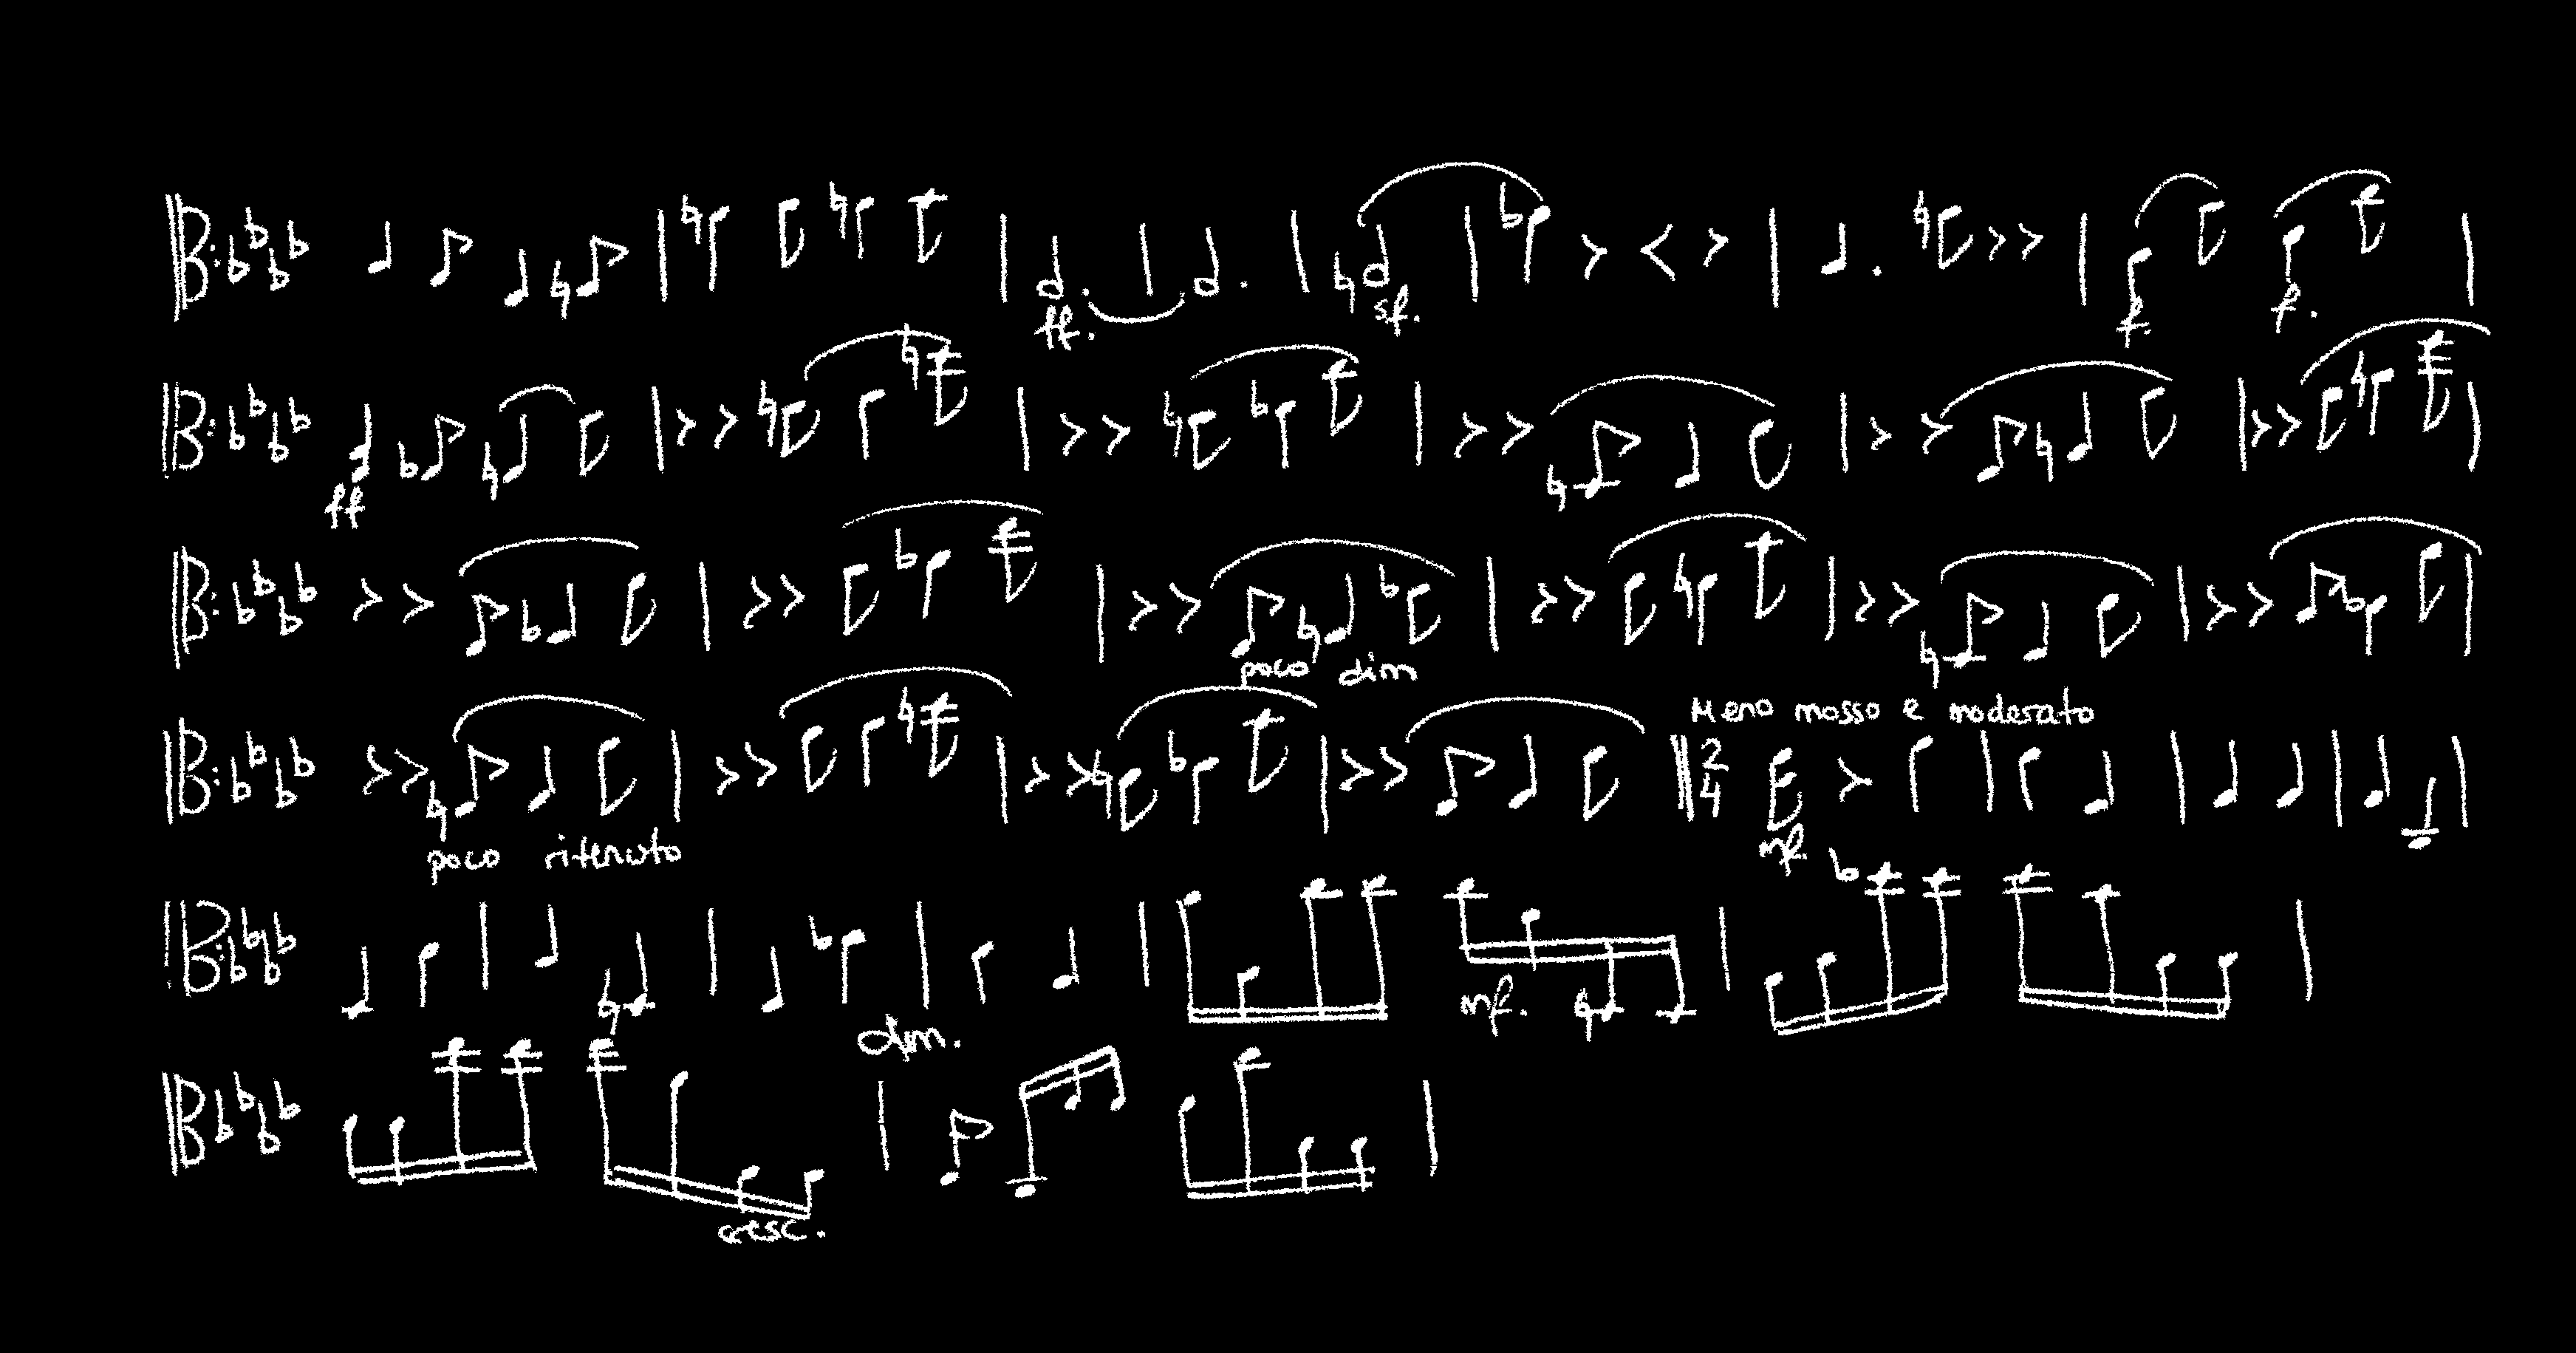 ff. sf. f. f.
ff
poco dim
Meno mosso e moderato
2
4
poco ritenuto
mf.
dim. mf.
cresc.